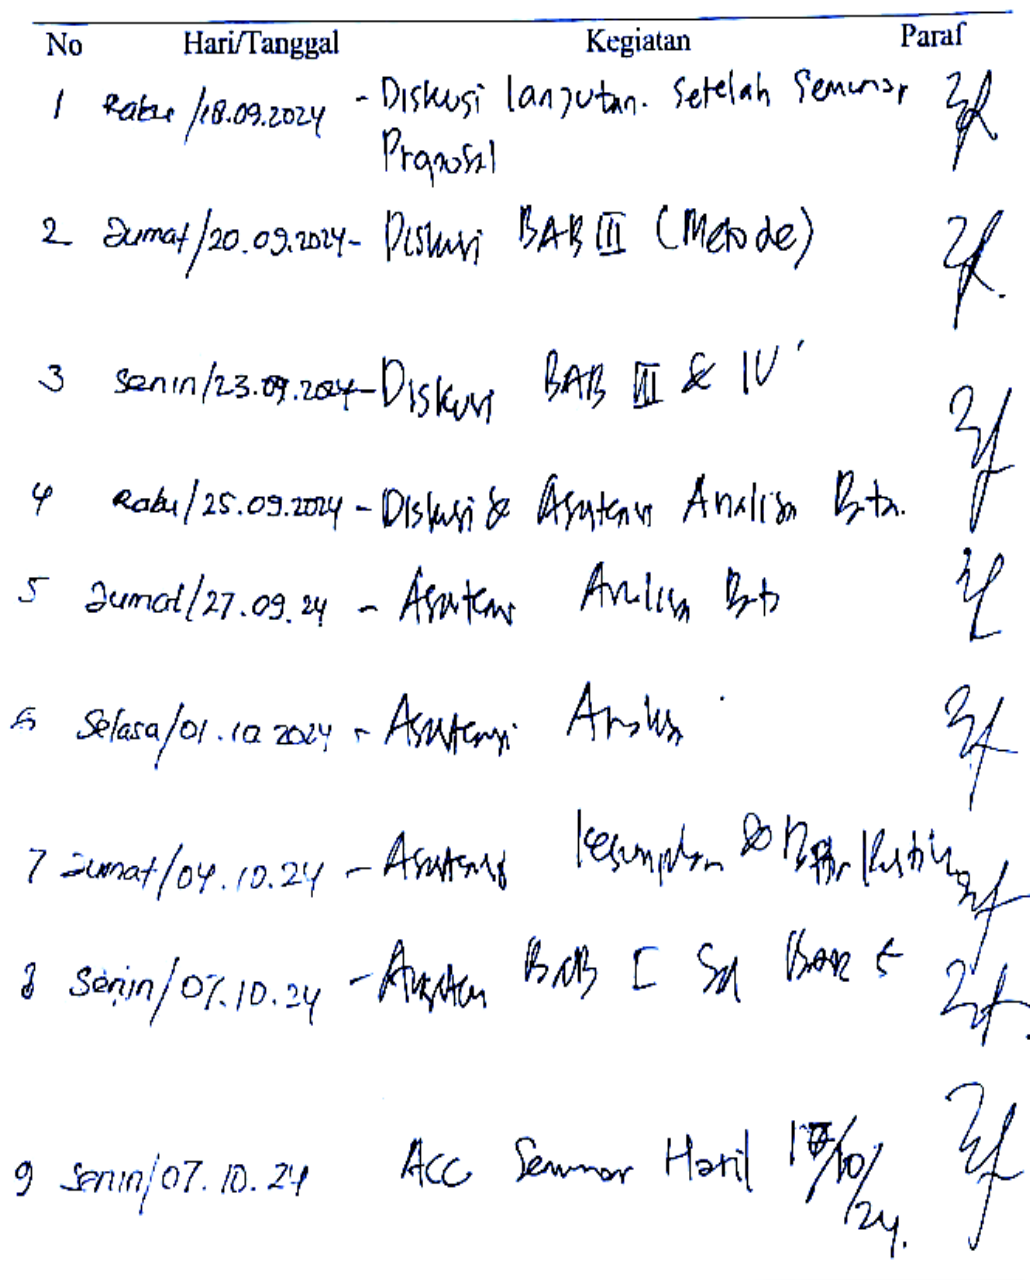 No Hari/Tanggal Kegiatan Paraf
1 Rabu /18.09.2024 - Diskusi lanjutan. Setelah Seminar
Proposal
2 Jumat/20.09.2024- Diskusi BAB III (Metode)
3 Senin/23.09.2024-Diskusi BAB III & IV
4 Rabu/25.09.2024 - Diskusi & Asistensi Analisa Data.
5 Jumat/27.09.24 - Asistensi Analisa Data
6 Selasa/01.10.2024 - Asistensi Analisa
7 Jumat/04.10.24 - Asistensi Kesimpulan &
8 Senin/07.10.24 - Asistensi BAB I Sd BAB 5
9 Senin/07.10.24 ACC Seminar Hasil /10/
24.